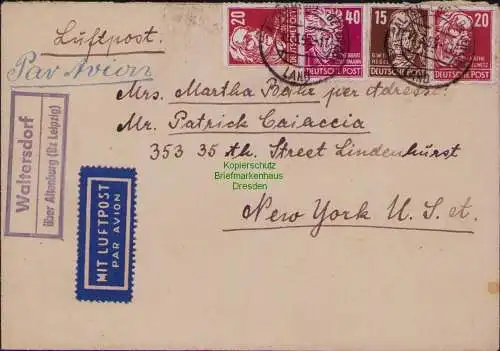 Luftpost.
Par Avion
20 40 15 20
DEUTSCHE POST DEUTSCHE POST DEUTSCHE POST
Mrs. Martha per Adresse:
Mr. Patrick Caiaccia
353 35 th. Street Lindenhurst
New York U. S. A.
Waltersdorf
über Altenburg (Bz Leipzig)
MIT LUFTPOST
PAR AVION
Kopierschutz
Briefmarkenhaus
Dresden